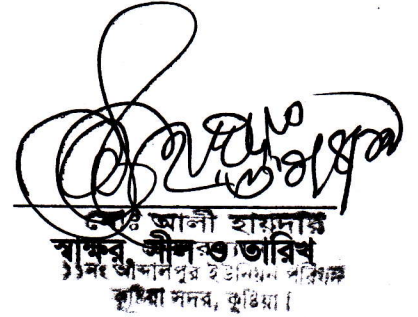 মোঃ আলী হায়দার
স্বাক্ষর, সীল ও তারিখ
১১নং আব্দালপুর ইউনিয়ন পরিষদ
কুষ্টিয়া সদর, কুষ্টিয়া।